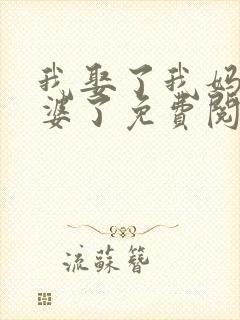 我娶了我妈
婆了免费阅
流苏簪